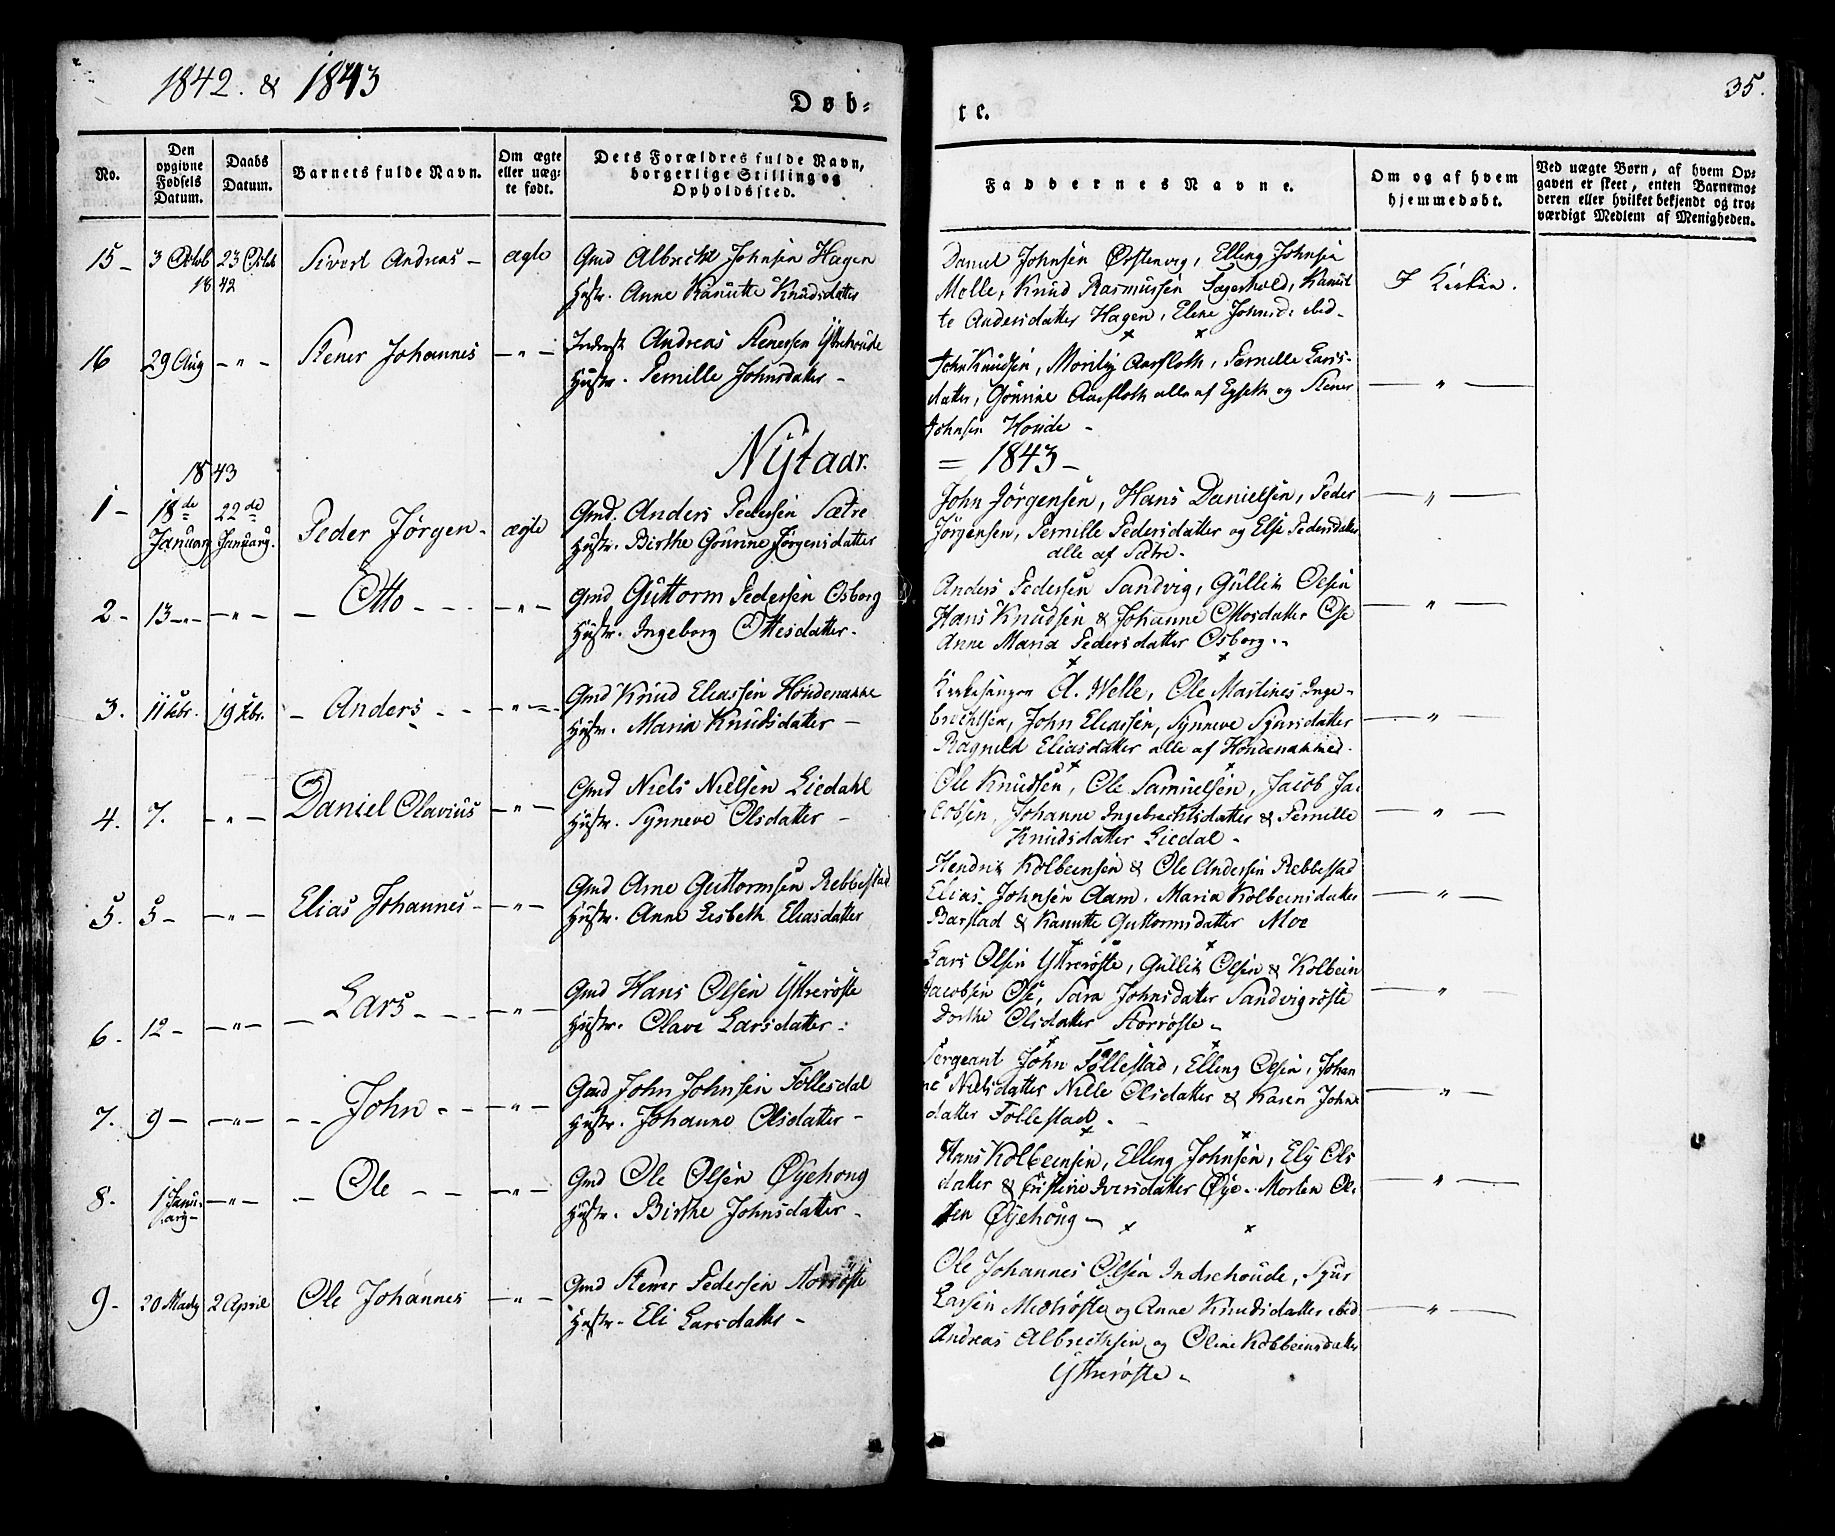 1842. & 1843
Døb-
te.
35.
No.
Den
opgivne
Fødsels
Datum.
Daabs
Datum.
Barnets fulde Navn.
Om ægte
eller uæg-
te født.
Dets Forældres fulde Navn,
borgerlige Stilling og
Opholdssted.
Faddernes Navne.
Om og af hvem
hjemmedøbt.
Ved uægte Børn, af hvem Op-
gaven er skeet, enten Barnemo-
deren eller hvilket bekjendt og tro-
værdigt Medlem af Menigheden.
15 -
3 Octob
23 Octob
1842
Sivert Andreas -
ægte
Gmd Albrecht Johnsen Hagen
Hustr. Anne Kanutte Knudsdatter
Daniel Johnsen Ørstenvig, Elling Johnsen
Molle, Knud Rasmussen, Kanut
te Andersdatter Hagen, Elene Johnsd. ibid -
I Kirken.
16
29 Aug
- " -
Stener Johannes
- " -
Inderst Andreas Stenersen Yttrehoude
Hustr. Pernille Johnsdatter -
John Knudsen, Moritz Aarfloth, Pernille Lars-
datter, Gourine Aarfloth alle af Egseth og Stener
Johnsen Houde -
- " -
Nytaar.
= 1843 -
1843
1 -
18de
Januar
22de
January.
Peder Jørgen -
ægte
Gmd. Anders Pedersen Sætre
Hustr. Birthe Gourine Jørgensdatter
John Jørgensen, Hans Danielsen, Peder
Jørgensen, Pernille Pedersdatter og Else Pedersdatter
alle af Sætre -
- " -
2 -
13 - " -
- " -
- Otto - - -
- " -
Gmd Guttorm Pedersen Osborg
Hustr. Ingeborg Ottesdatter -
Anders Pedersen Sandvig, Gullik Olsen
Hans Knudsen & Johanne Ottosdatter Ose
Anne Maria Pedersdatter Osborg. -
- " -
3.
11 Febr.
19 Febr.
- Anders - -
- " -
Gmd Knud Eliassen Houdenakke
Hustr. Maria Knudsdatter -
Kirkesanger A. Welle, Ole Martines Inge-
brechtsen, John Eliassen, Synneve Syvrsdatter
Ragnild Eliasdatter alle af Houdenakked -
- " -
4.
7.
- " -
Daniel Olavius
- " -
Gmd Niels Nielsen Liedahl
Hustr. Synneve Olsdatter -
Ole Knudsen, Ole Samuelsen, Jacob Ja-
cobsen, Johanne Ingebrechtsdatter & Pernille
Knudsdatter Liedal -
- " -
5.
5 -
- " -
Elias Johannes -
- " -
Gmd Arne Guttormsen Rebbestad
Hustr. Anne Lisbeth Eliasdatter
Hendrik Kolbeensen & Ole Andersen Rebbestad
Elias Johnsen Aam. Maria Kolbeinsdatter
Barstad & Kanutte Guttormsdatter Moe
- " -
6.
12 -
- " -
- Lars - - -
- " -
Gmd Hans Olsen Yttrerøste
Hustr. Olave Larsdatter -
Lars Olsen Yttrerøste, Gullik Olsen & Kolbein
Jacobsen Ose, Sara Johnsdatter Sandvigrøste
Dorthe Olsdatter Storrøste -
- " -
7.
9 -
- " -
- - John - -
- " -
Gmd John Johnsen Follesdal
Hustr. Johanne Olsdatter -
Sergeant John Follestad, Elling Olsen, Johan
ne Nielsdatter Nille Olsdatter & Karen Johns
datter Follestad. -
- " -
8.
1 Janu-
ary -
- " -
- Ole - -
- " -
Gmd Ole Olsen Øyehoug
Hustr. Birthe Johnsdatter -
Hans Kolbeensen, Elling Johnsen, Ely Ols
datter & Cristine Iversdatter Øye - Morten Ol-
sen Øyehoug -
- " -
9 -
20 Marty
2 April
Ole Johannes
- " -
Gmd Stener Pedersen Storrøste
Hustr. Eli Larsdatter -
Ole Johannes Olsen Indrehoude, Syur
Larsen Medrøste og Anne Knudsdatter ibid
Andreas Albrethsen og Oline Kolbeinsdatter
Yttrerøste -
- " -